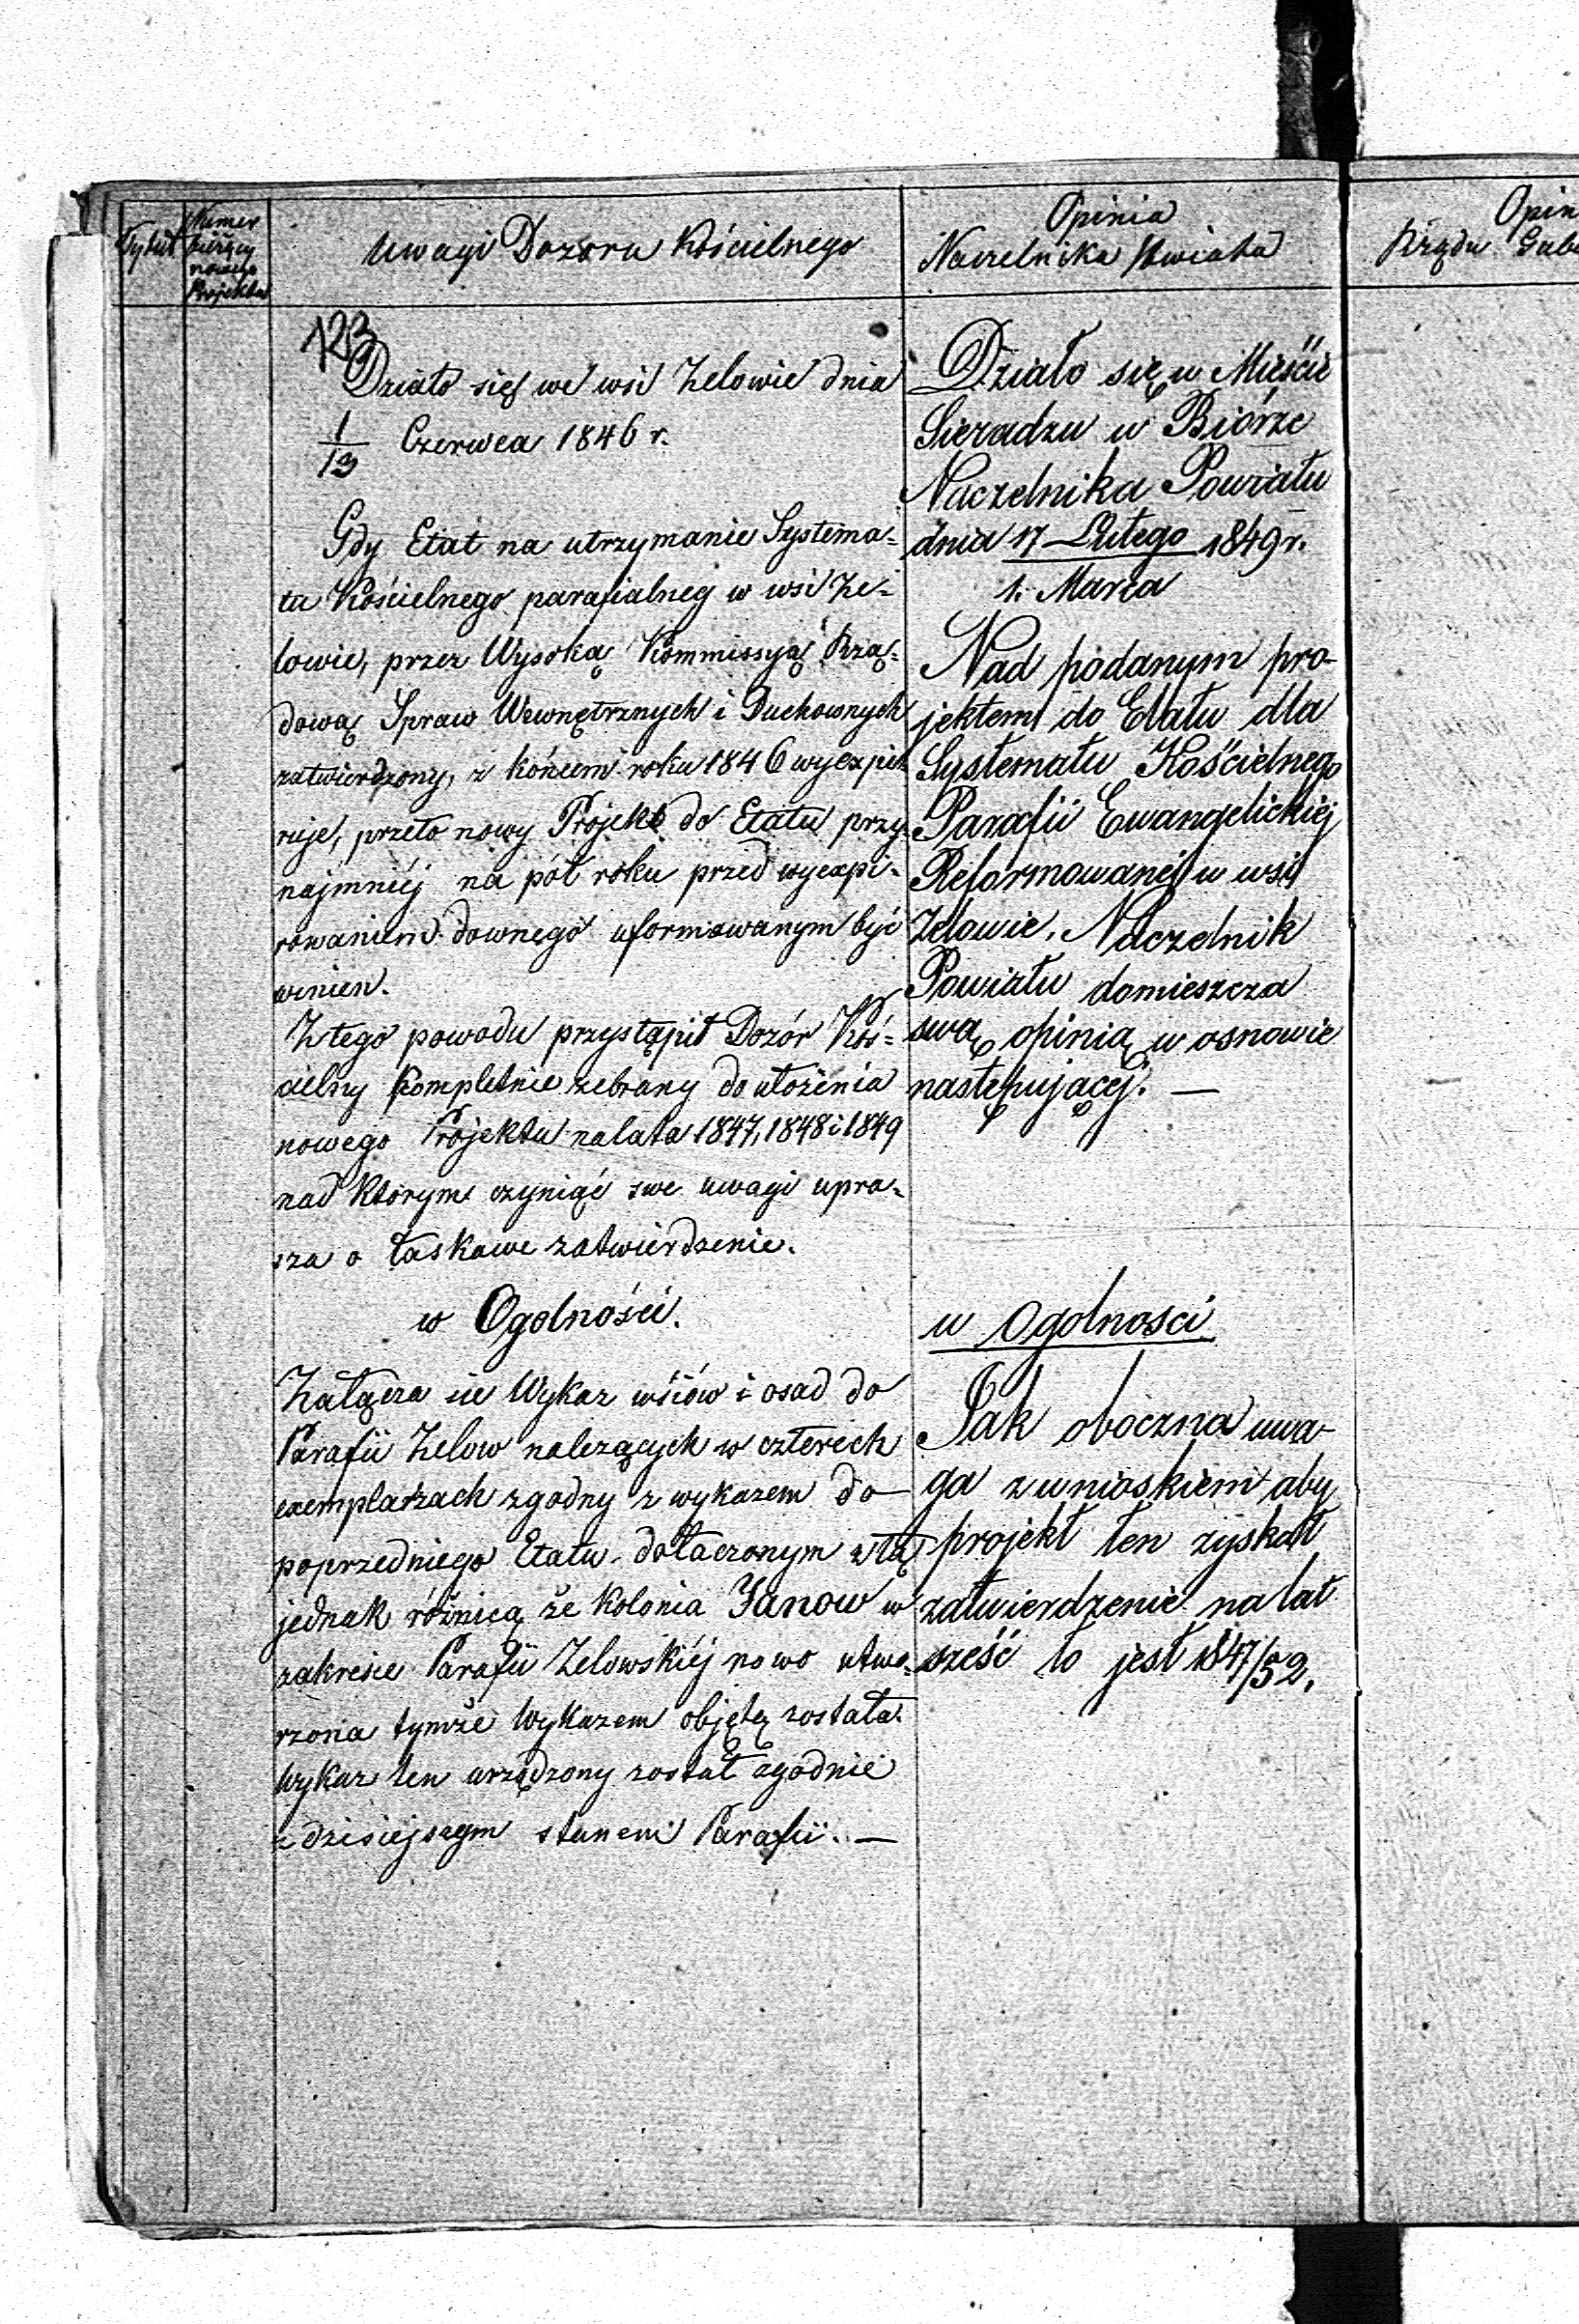 Tytuł
Numer
bieżący
nowego
Projektu
Uwagi Dozoru Kościelnego
Opinia
Naczelnika Powiatu
Opin
Rządu Gube
123
Działo się we wsi Zelowie dnia
1/13 Czerwca 1846 r.
Gdy Etat na utrzymanie Systema-
tu Kościelnego parafialneg w wsi Ze-
lowie, przez Wysoką Kommissyą Rzą-
dową Spraw Wewnętrznych i Duchownych
zatwierdzony, z końcem roku 1846 wyexpi-
ruje, przeto nowy Projekt do Etatu przy-
najmniéj na pół roku przed wyexpi-
rowaniem dawnego uformowanym być
winien.
Z tego powodu przystąpił Dozór Koś-
cielny kompletnie zebrany do ułożenia
nowego Projektu na lata 1847, 1848 i 1849
nad którym czyniąc swe uwagi upra-
sza o łaskawe zatwierdzenie.
w Ogolności.
Załącza się Wykaz wsiów i osad do
Parafii Zelow należących w czterech
exemplarzach zgodny z wykazem do
poprzedniego Etatu dołaczonym z tą
jednak różnicą że kolonia Janow w
zakresie Parafii Zelowskiéj nowo utwo-
rzona tymże Wykazem objętą została.
Wykaz ten urządzony został zgodnie
z dzisiejszym stanem Parafii. —
Działo się w Mieście
Sieradzu w Biórze
Naczelnika Powiatu
dnia 17 Lutego 1849 r.
1. Marca
Nad podanym pro-
jektem do Etatu dla
Systematu Kościelnego
Parafii Ewangelickiej
Reformowanéj w wsi
Zelowie, Naczelnik
Powiatu domieszcza
swą opinią w osnowie
następującej. —
w Ogolnosci
Jak oboczna uwa-
ga z wnioskiem aby
projekt ten zyskał
zatwierdzenie na lat
sześć to jest 1847/52.